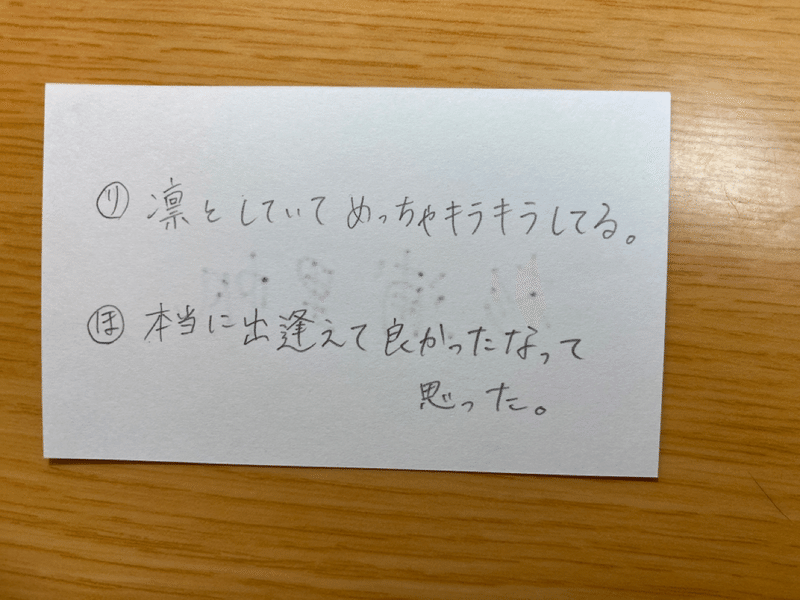 ㋷ 凛としていてめっちゃキラキラしてる。
㋭ 本当に出逢えて良かったなって
思った。